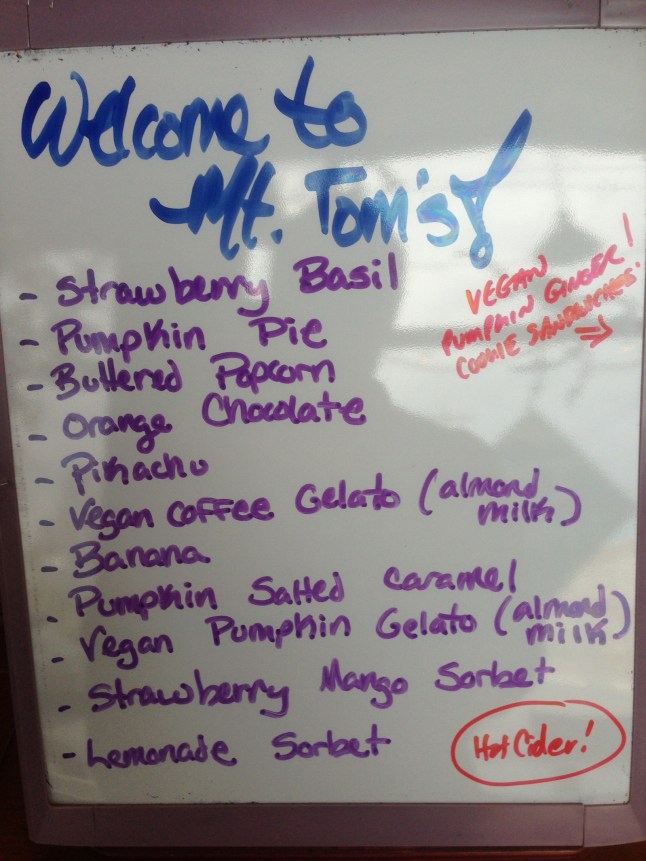 Welcome to
Mt. Tom's!
- Strawberry Basil
- Pumpkin Pie
- Buttered Popcorn
- Orange Chocolate
- Pikachu
- Vegan Coffee Gelato (almond
milk)
- Banana
- Pumpkin Salted Caramel
- Vegan Pumpkin Gelato (almond
milk)
- Strawberry Mango Sorbet
- Lemonade Sorbet
VEGAN
PUMPKIN GINGER!
COOKIE SANDWICHES.
→
Hot Cider!